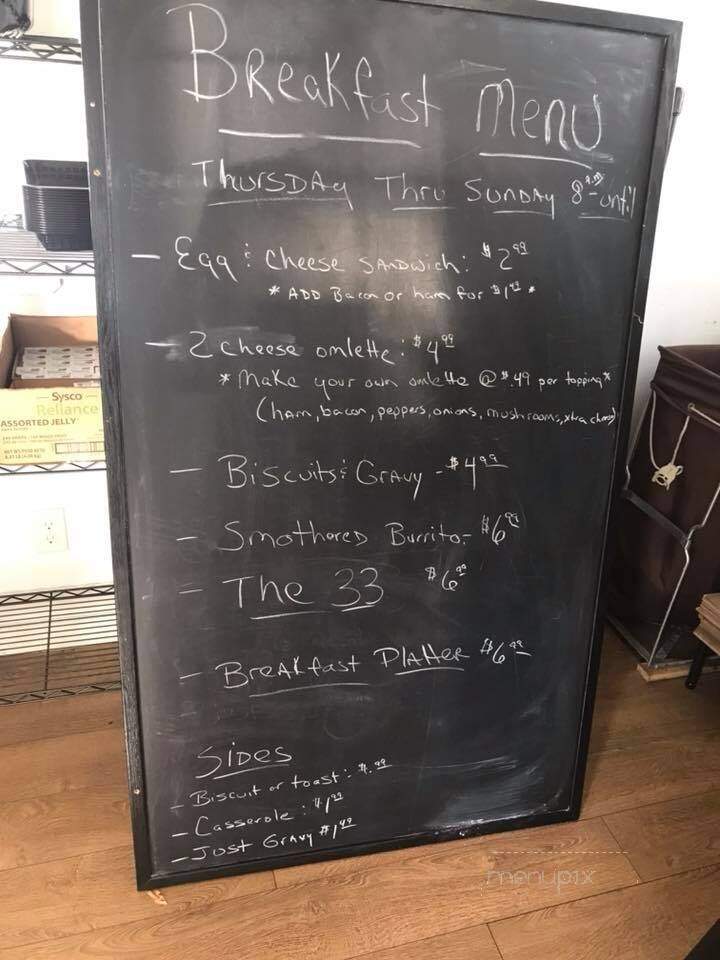 Breakfast Menu
Thursday Thru Sunday 8 a.m - until
- Egg & Cheese Sandwich: $2.99
* ADD Bacon or ham for *
- 2 cheese omlette: $4.99
* Make your own omlette @ $.49 per topping *
(ham, bacon, peppers, onions, mushrooms, xtra cheese)
- Biscuits & Gravy - $4.99
- Smothered Burrito - $6.99
- The 33 $6.99
- Breakfast Platter $6.99
Sides
- Biscuit or toast: $.99
- Casserole: $1.99
- Just Gravy $1.49
Sysco
Reliance
ASSORTED JELLY
menupix